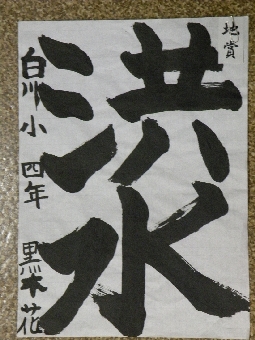 地賞
洪水
白川小 四年 黒木花